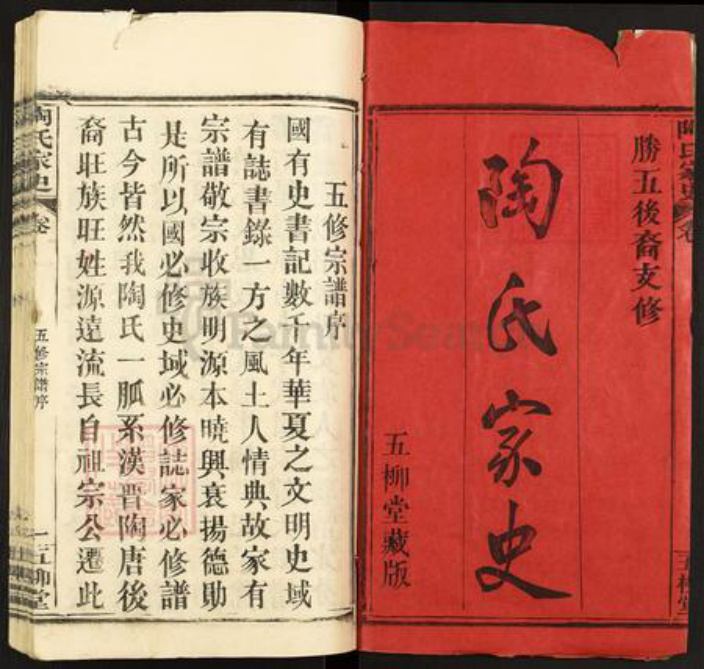 勝五後裔支修
陶氏家史
五柳堂藏版
陶氏家史
卷
五柳堂
五修宗譜序
國有史書記數千年華夏之文明史域
有誌書錄一方之風土人情典故家有
宗譜敬宗收族明源本曉興衰揚德勛
是所以國必修史域必修誌家必修譜
古今皆然我陶氏一脈系漢晋陶唐後
裔旺族旺姓源遠流長自祖宗公遷此
陶氏家史
卷
五修宗譜序
一五柳堂
FamilySearch